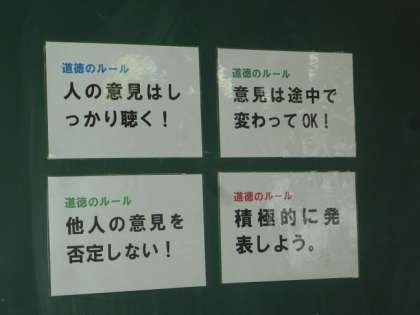 道徳のルール
人の意見はし
っかり聴く！
道徳のルール
意見は途中で
変わってOK！
道徳のルール
他人の意見を
否定しない！
道徳のルール
積極的に発
表しよう。